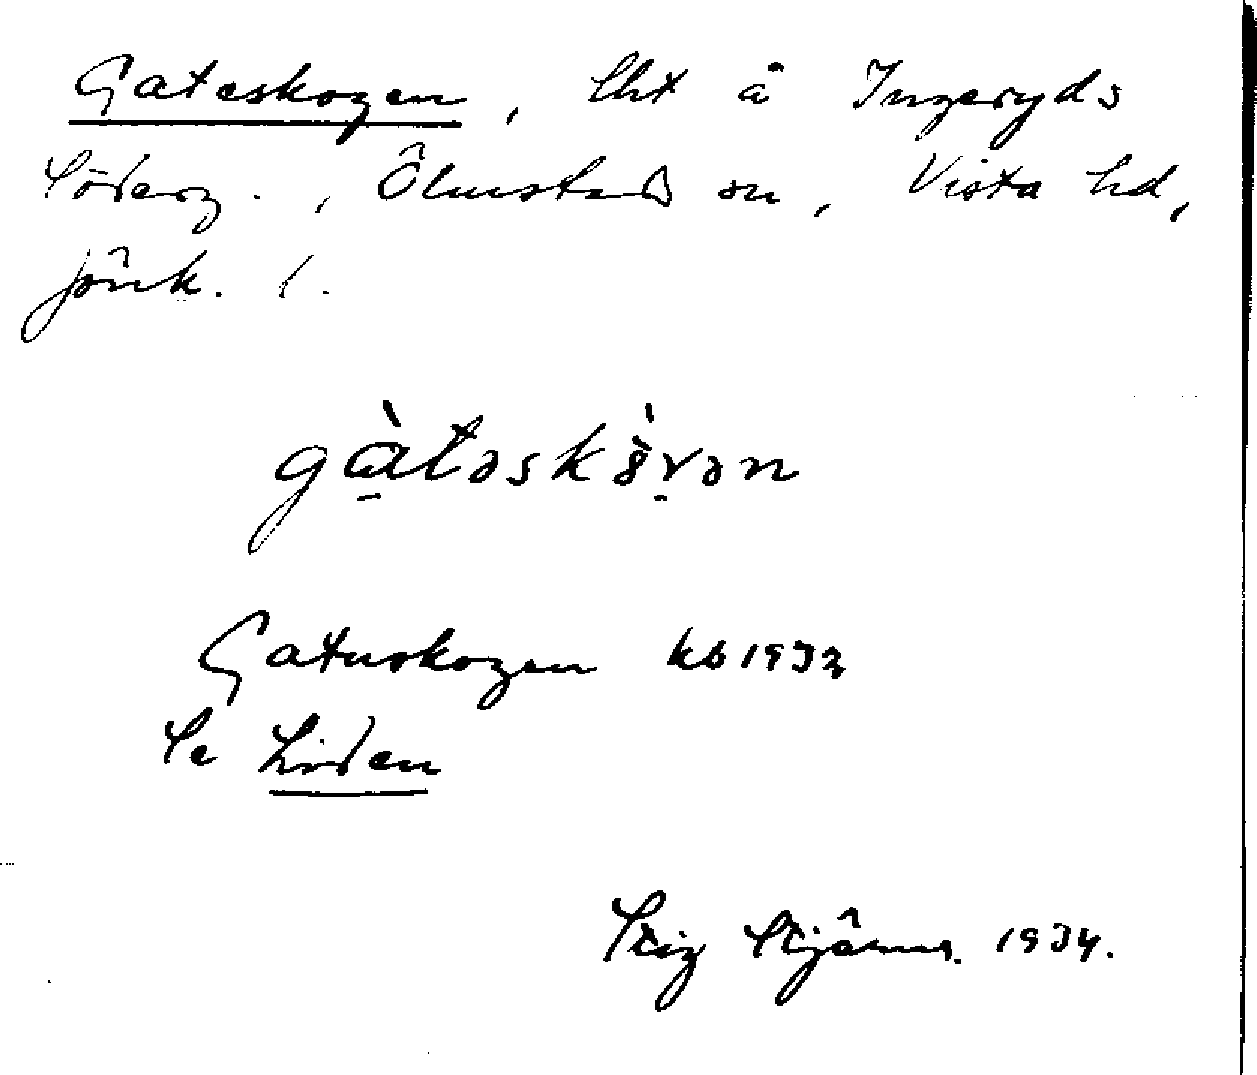 Gateskogen, lht å Ingeryds
Söderg., Ölmstad sn, Vista hd,
Jönk. l.
gàtəskòvən
Gatuskogen kb 1932
Se Liden
Stig Stjärne. 1934.